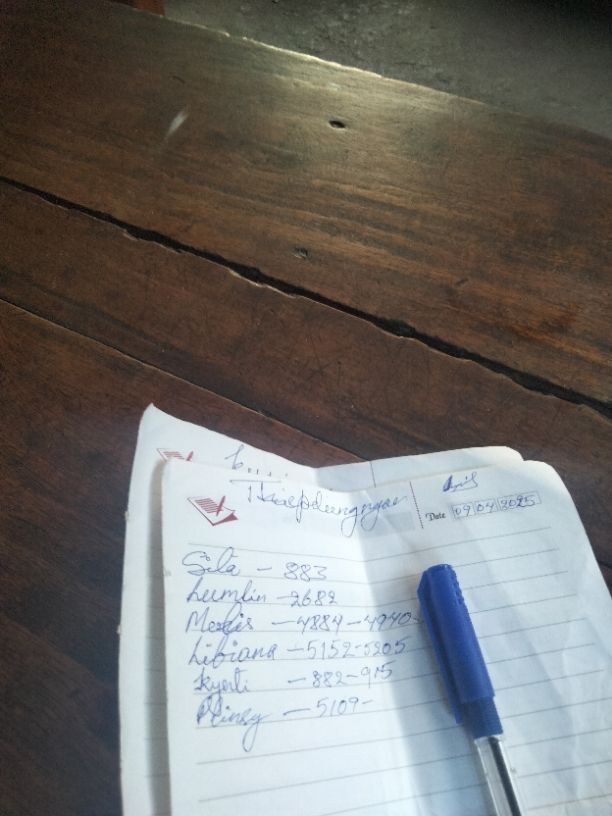 April
Date 09 04 2025
Sita - 883
Lumlin - 2682
Melis - 4884 - 4940
Libiana - 5152 - 5205
Kyrti - 882 - 915
- 5109 -